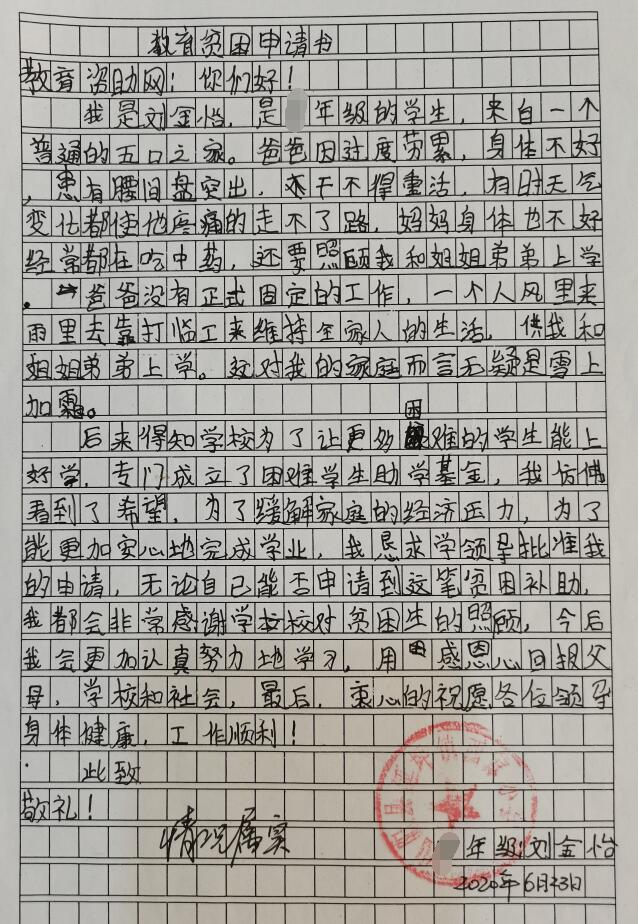 教育贫困申请书
教育资助网：你们好！
我是刘金怡，是 年级的学生，来自一个
普通的五口之家。爸爸因过度劳累，身体不好
，患有腰间盘突出，还干不得重活，有时天气
变化都使他疼痛的走不了路，妈妈身体也不好
经常都在吃中药，还要照顾我和姐姐弟弟上学
。爸爸没有正式固定的工作，一个人风里来
雨里去靠打临工来维持全家人的生活，供我和
姐姐弟弟上学。这对我的家庭而言无疑是雪上
加霜。
后来得知学校为了让更多困难的学生能上
好学，专门成立了困难学生助学基金，我仿佛
看到了希望，为了缓解家庭的经济压力，为了
能更加实心地完成学业，我恳求学领导批准我
的申请，无论自己能否申请到这笔贫困补助，
我都会非常感谢学校校对贫困生的照顾，今后
我会更加认真努力地学习，用感恩心回报父
母，学校和社会，最后，衷心的祝愿各位领导
身体健康，工作顺利！
此致
敬礼！
情况属实
年级：刘金怡
2020年6月23日